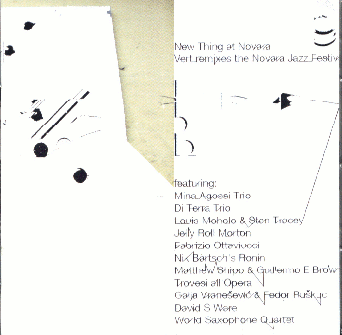 New Thing at Novara
Vert remixes the Novara Jazz Festiv
featuring:
Mina Agossi Trio
Di Terra Trio
Louis Moholo & Stan Tracey
Jelly Roll Morton
Fabrizio Ottaviucci
Nik Bärtsch's Ronin
Matthew Shipp & Guillermo E Brow
Trovesi all Opera
Gaya Vranešević & Fedor Ruškuc
David S Ware
World Saxophone Quartet